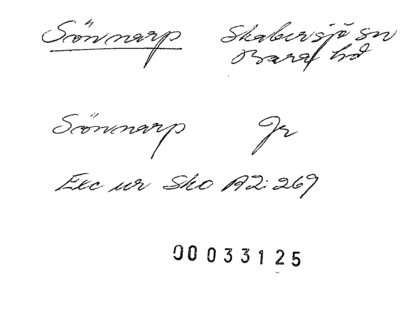 Sönnarp Skabersjö sn
Bara hd
Sönnarp Jr
Exc ur Sko A2:269
00033125